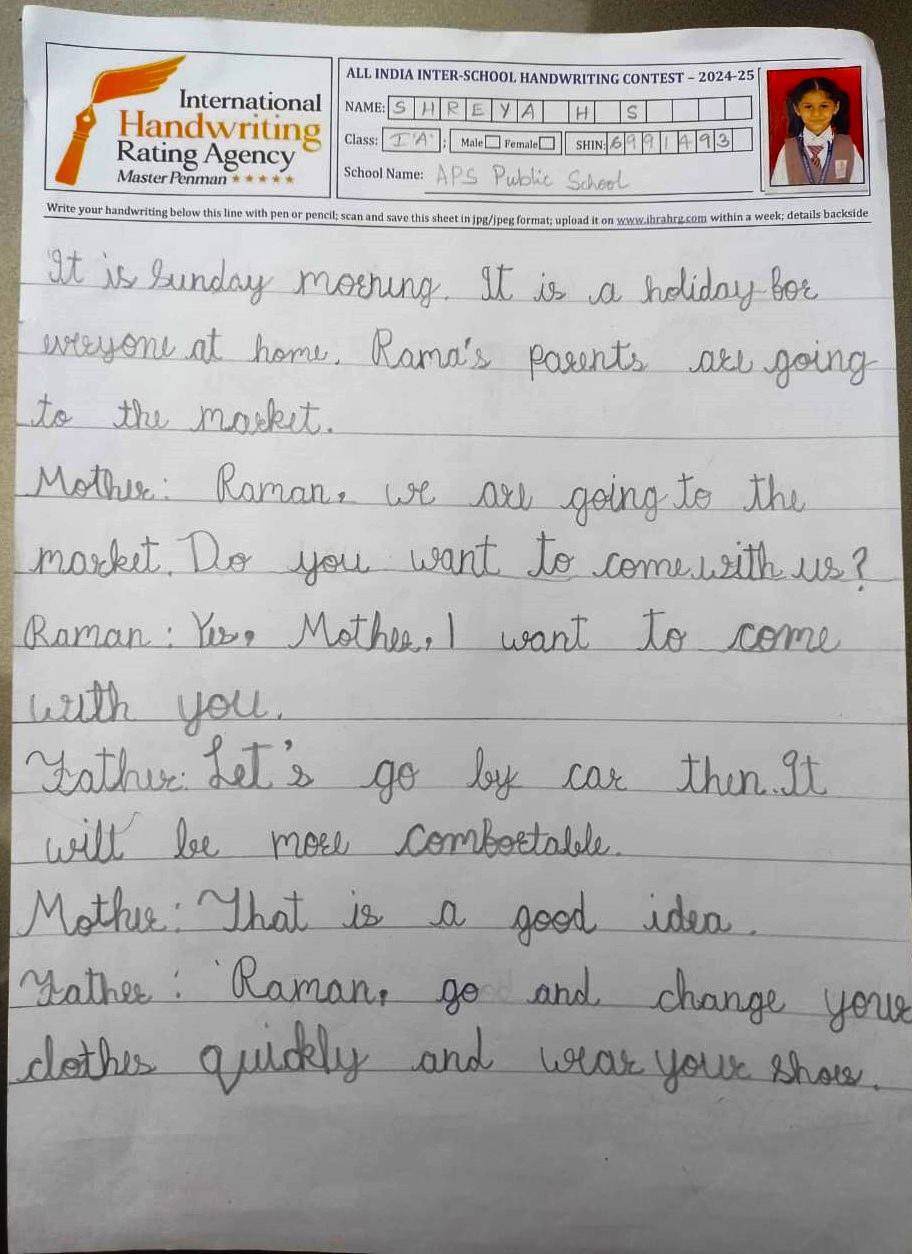 International
Handwriting
Rating Agency
Master Penman ★★★★★
ALL INDIA INTER-SCHOOL HANDWRITING CONTEST – 2024-25
NAME: SHREYA H S
Class: I 'A' ; Male Female SHIN: 6991493
School Name: APS Public School
Write your handwriting below this line with pen or pencil; scan and save this sheet in jpg/jpeg format; upload it on www.ihrahrg.com within a week; details backside
It is Sunday morning. It is a holiday for
everyone at home. Rama's parents are going
to the market.
Mother: Raman, we are going to the
market. Do you want to come with us?
Raman : Yes, Mother, I want to come
with you.
Father: Let's go by car then. It
will be more comfortable.
Mother: That is a good idea.
Father: Raman, go and change your
clothes quickly and wear your shoes.